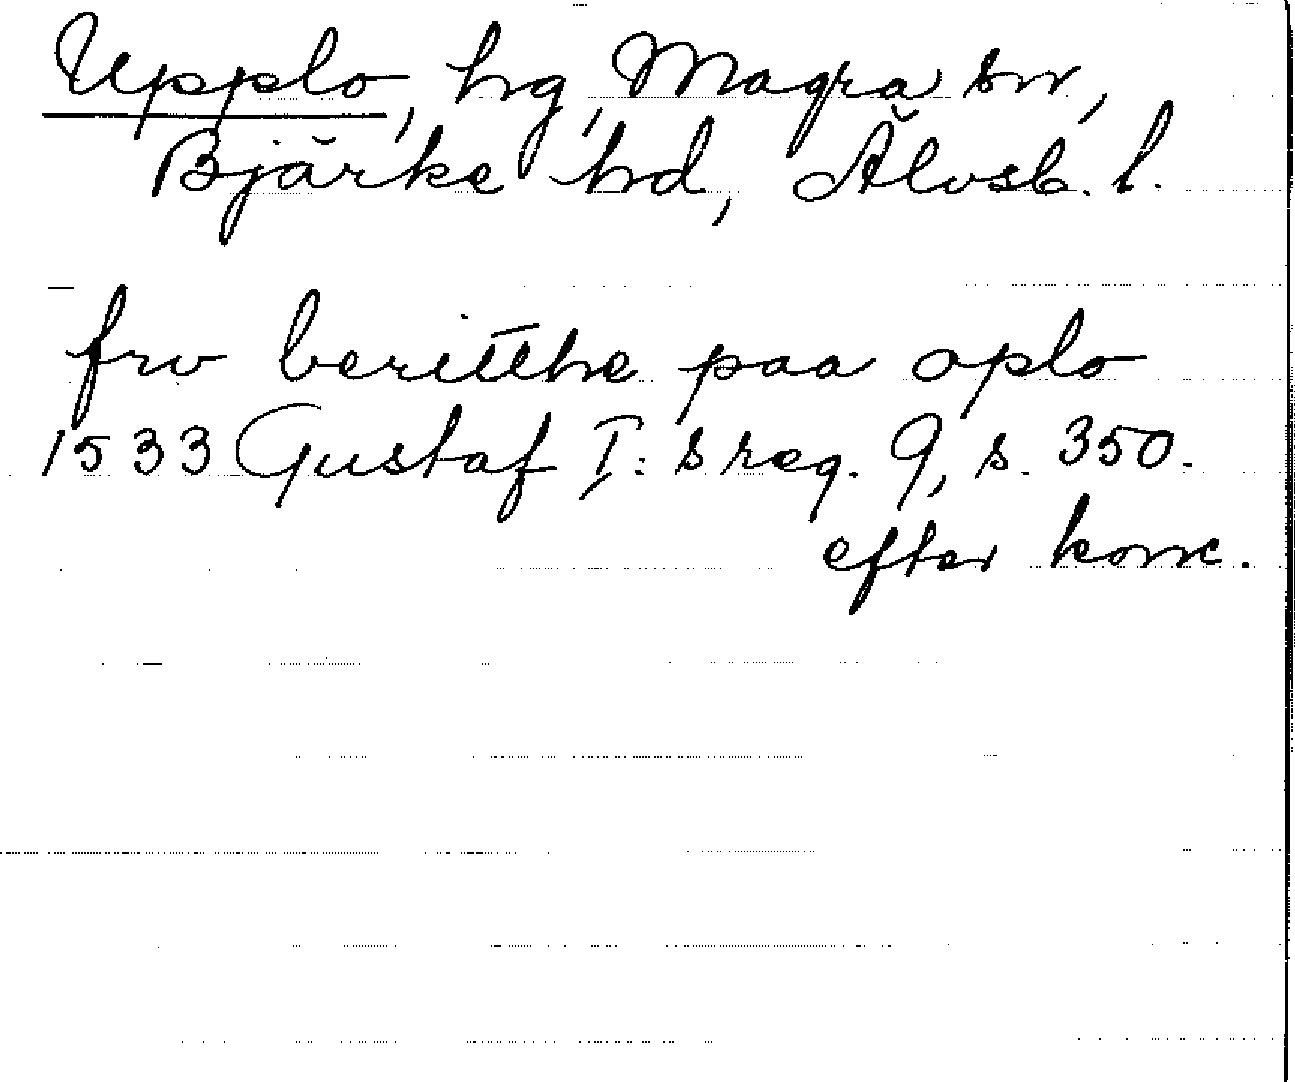 Upplo, hg, Magra sn,
Bjärke hd, Älvsb. l.
frv beritthe paa oplo
1533 Gustaf I:s reg. 9, s. 350.
efter konc.